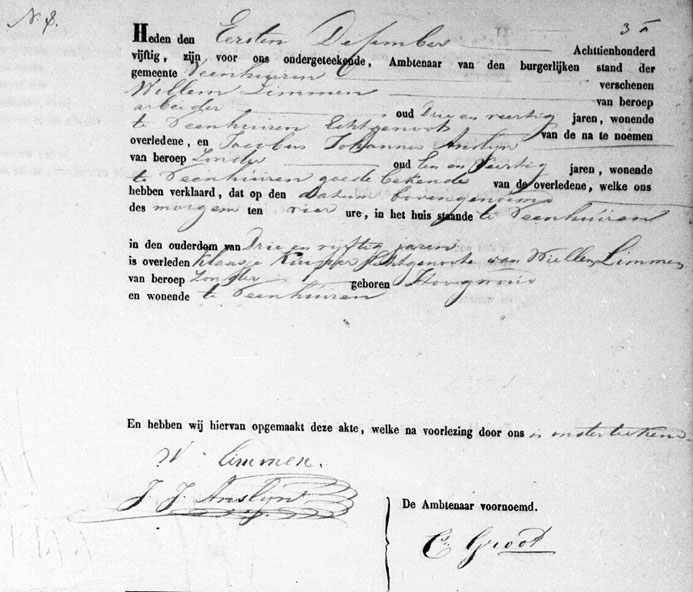 N. 8.
Heden den Eersten December Achttienhonderd
vijftig, zijn voor ons ondergeteekende, Ambtenaar van den burgerlijken stand der
gemeente Veenhuizen verschenen
Willem Zimmen van beroep
arbeider oud Drie en veertig jaren, wonende
te Veenhuizen Echtgenoot van de na te noemen
overledene, en Jacobus Johannes Anslijn
van beroep Zonder oud Een en Veertig jaren, wonende
te Veenhuizen goede bekende van de overledene, welke ons
hebben verklaard, dat op den datum bovengenoemd
des morgens ten vier ure, in het huis staande te Veenhuizen
in den ouderdom van Drie en vijftig jaren
is overleden Klaasje Echtgenoote van Willem Zimmen
van beroep Zonder geboren
en wonende te Veenhuizen
En hebben wij hiervan opgemaakt deze akte, welke na voorlezing door ons is onderteekend.
W Zimmen.
J. J. Anslijn
De Ambtenaar voornoemd.
C. Groot